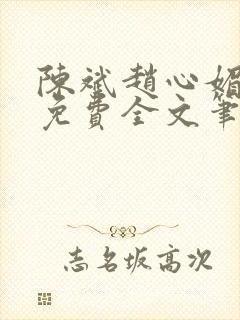 陳斌趙心媚
免費全文筆
志名坂高次